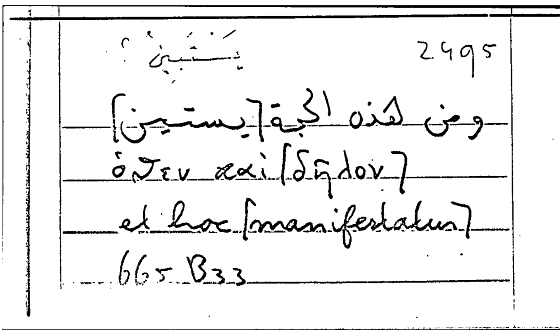 يَسْتَبِينُ ؟ 2495
ومن هذه الجهة [يستبين]
ὅθεν καὶ [δῆλον]
et hoc [manifestatur]
665 B33